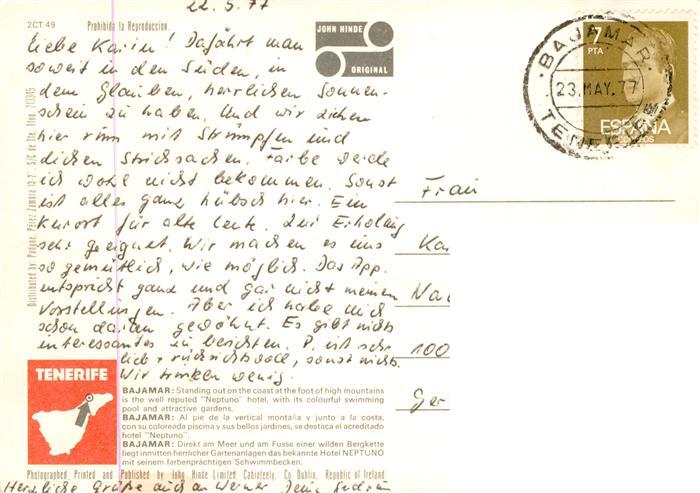 22.5.77
2CT 49
Prohibida la Reproduccion.
JOHN HINDE
ORIGINAL
7
PTA
ESPAÑA
CORREOS
BAJAMAR
23.MAY.77
TENERIFE
Liebe Karin! Da fährt man
soweit in den Süden, in
dem Glauben, herrlichen Sonnen-
schein zu haben. Und wir ziehen
hier rum mit Strümpfen und
dicken Stricksachen. Farbe werde
ich wohl nicht bekommen. Sonst
ist alles ganz hübsch hier. Ein
Kurort für alte Leute. Zur Erholung
sehr geeignet. Wir machen es uns
so gemütlich, wie möglich. Das App.
entspricht ganz und gar nicht meinen
Vorstellungen. Aber ich habe mich
schon daran gewöhnt. Es gibt nichts
interessantes zu berichten. P. ist sehr
lieb + rücksichtsvoll, sonst nichts.
Wir trinken wenig.
Herzliche Grüße auch an Werner Deine
Frau
Ka
100
Ger
Distributed by: Pérez Zamora
TENERIFE
BAJAMAR: Standing out on the coast at the foot of high mountains
is the well reputed "Neptuno" hotel, with its colourful swimming
pool and attractive gardens.
BAJAMAR: Al pie de la vertical montaña y junto a la costa,
con su coloreada piscina y sus bellos jardines, se destaca el acreditado
hotel "Neptuno".
BAJAMAR: Direkt am Meer und am Fusse einer wilden Bergkette
liegt inmitten herrlicher Gartenanlagen das bekannte Hotel NEPTUNO
mit seinem farbenprächtigen Schwimmbecken.
Photographed Printed and Published by John Hinde Limited, Cabinteely, Co Dublin, Republic of Ireland.